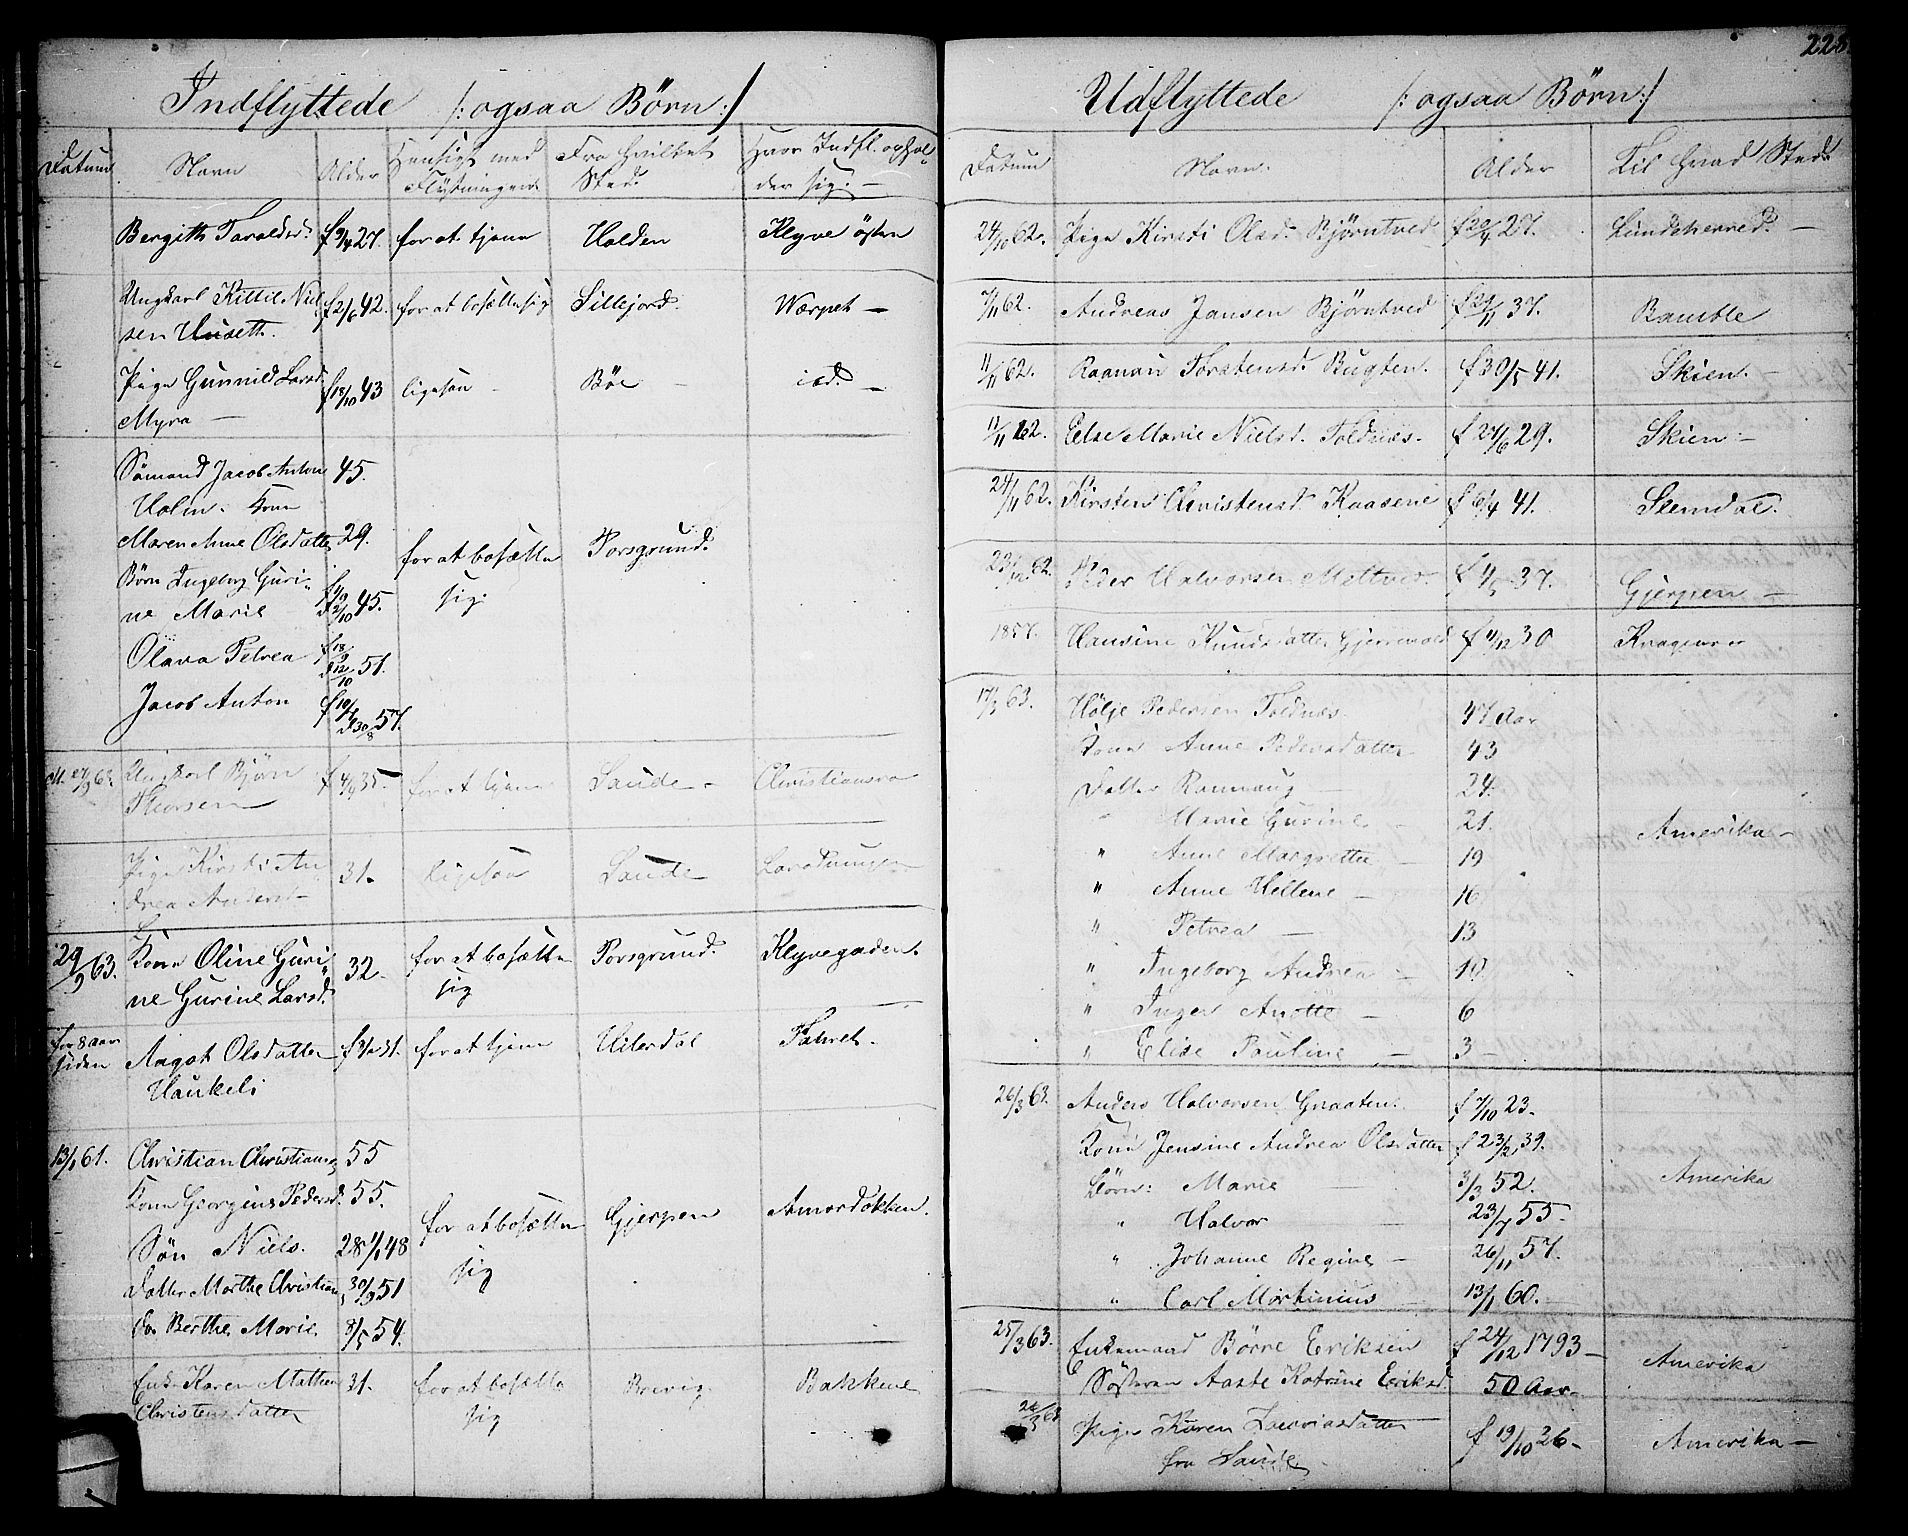 228
Indflyttede /: ogsaa Børn :/
Datum Navn Alder Hensigt med Flytningen Fra hvilket Sted. Hvor Indfl. ophol- der sig. —
Bergith Taraldsd. f 9/4 27. for at tjene Holden Klyve østen
Ungkarl Kittil Niel f 2/6 42. for at bosætte sig Sillejord. Værpet —
sen Huseth.
Pige Gunnild Larsd. f 18/10 43 ligesaa — Böe — id. —
Myra —
Sömand Jacob Anton 45.
Holm. Kone
Maren Anne Olsdatter 29. for at bosætte Porsgrund.
Børn Ingeborg Guri- sig.
ne Marie 45.
Olava Petrea 51.
Jacob Anton 57.
27/3 63. Ungkarl Björn f 4/4 35 for at tjene Saude — Christiansro
Thorsen
Pige Kirsti An 31. ligesaa Saude
drea Andersd —
29/9 63. Kone Oline Guri- 32. for at bosætte Porsgrund. Klyvegaden.
ne Gurine Larsd. sig
for 8 aar Aagot Olsdatter for at tjene Hiterdal
siden Haukeli
13/1 61. Christian Christians 55
Kone Georgine Pedersd. 55. for at bosætte Gjerpen
Søn Niels. 28 1/1 48 sig
Datter Marthe Christian 30/9 51
do Berthe Marie. 8/5 54.
Enke Karen Mathea 31. for at bosætte Brevig. Bakkene
Christensdatter sig
Udflyttede /: ogsaa Børn :/
Datum Navn. Alder Til hvad Sted.
24/10 62. Pige Kirsti Olsd. Bjørntved f 20/4 27. Lundeherred. —
7/11 62. Andreas Jansen Bjørntved f 29/11 37. Bamble
11/11 62. Torstensd. Bugten. f 30/5 41. Skien. —
11/11 62. Else Marie Nielsd. Toldnæs. f 24/6 29. Skien. —
24/11 62. Kirsten Christensd. Kaasene f 6/4 41. Slemdal.
23/12 62. Peder Halvorsen f 4/5 37. Gjerpen —
1857. Hansine Knudsdatter f 4/12 30 Kragerøe
17/3 63. Hölje Pedersen Toldnæs. 47 Aar
Kone Anne Pedersdatter 43
Datter Rannaug — 24.
" Marie Gurine — 21. Amerika —
" Anne Margrethe — 19
" Anne Hellene — 16
" Petrea — 13
" Ingeborg Andrea — 10.
" Inger Anette — 6
" Elise Pauline — 3 —
26/3 63. Anders Halvorsen Graaten. f 7/10 23.
Kone Jensine Andrea Olsdatter f 23/2 39.
Børn: Marie — 3/3 52. Amerika
" Halvor — 23/7 55.
" Johanne Regine — 26/11 57.
" Carl Martinius — 13/1 60.
25/3 63. Enkemand Börre Eriksen f 24/12 1793 —
Søsteren Aaste Katrine Eriksd. 50 Aar. Amerika
Pige Karen f 19/10 26 — Amerika —
fra Saude